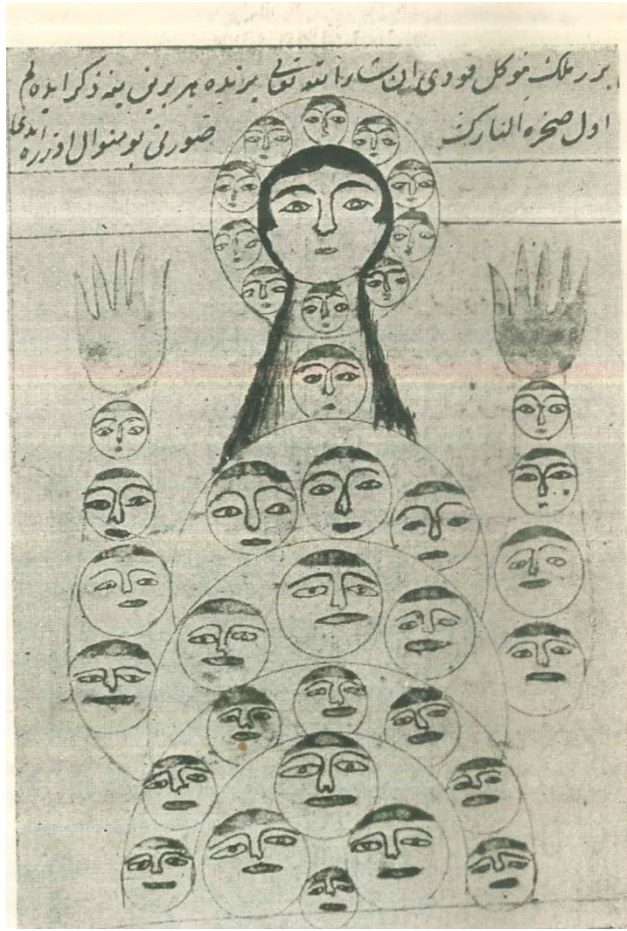 بر ملك موكل قودى ان شاء الله تعالى يرنده هر برينى ينه ذكر ايده لم
اول صخره النارك صورتى بو منوال اوزره ايدى